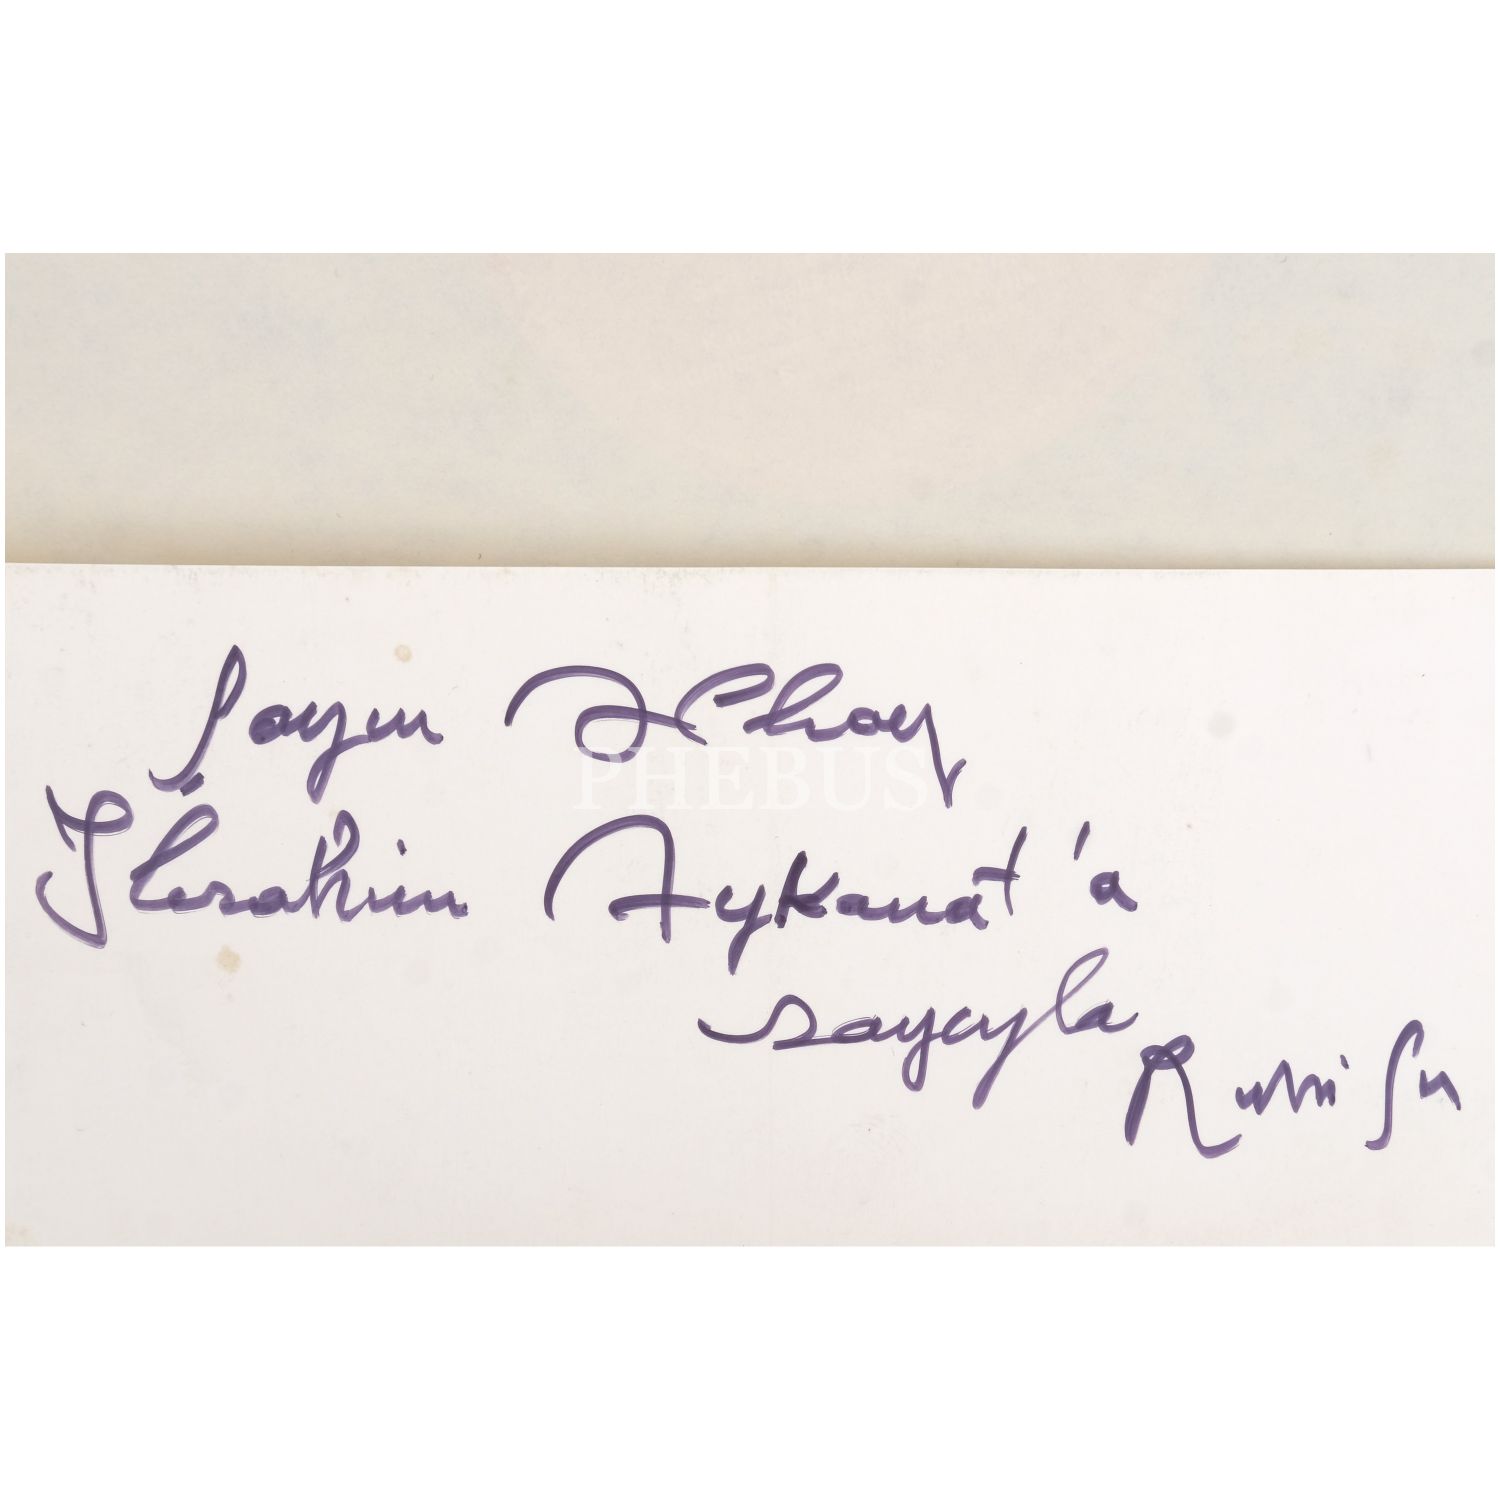 Sayın Albay
İbrahim Aykanat'a
saygıyla
Ruhi Su
PHEBUS